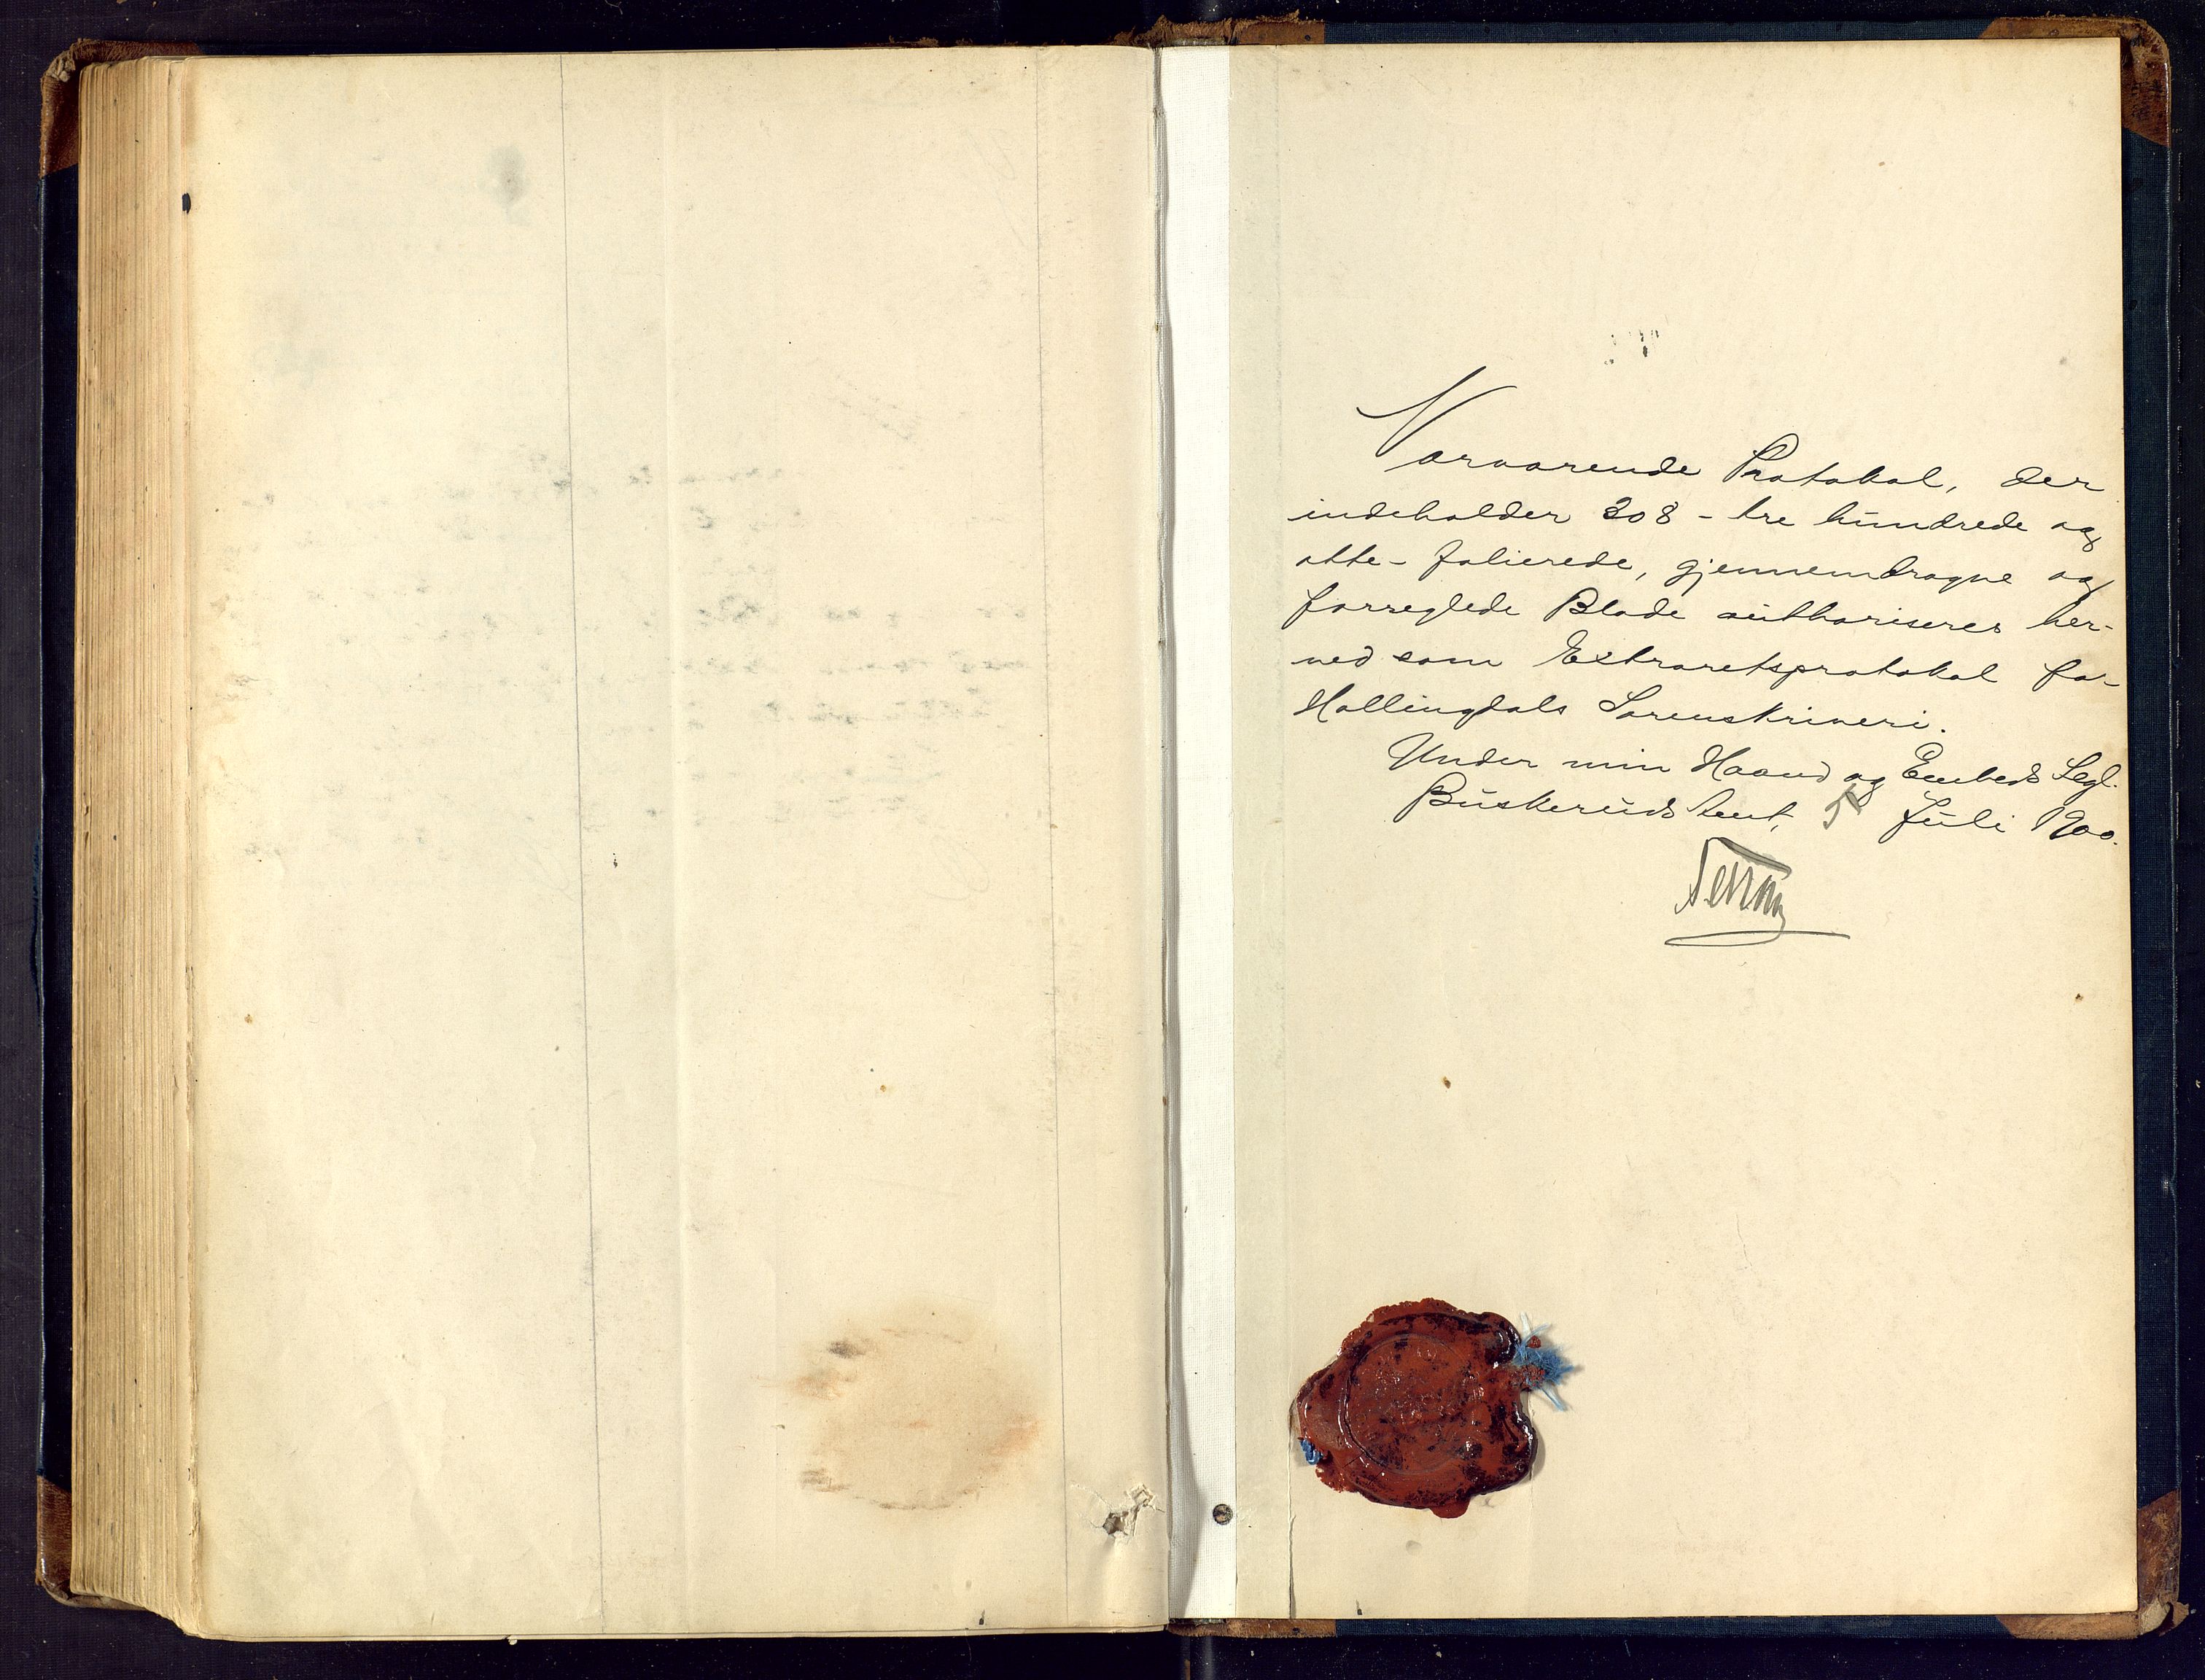 Nærværende Protokol, der
indeholder 308 - tre hundrede og
otte - folierede, gjennemdragne og
forseglede Blade authoriseres her-
ved som Extraretsprotokol for
Hallingdals Sorenskriveri.
Under min Haand og Embeds Segl.
Buskeruds Amt, 5 Juli 1900.